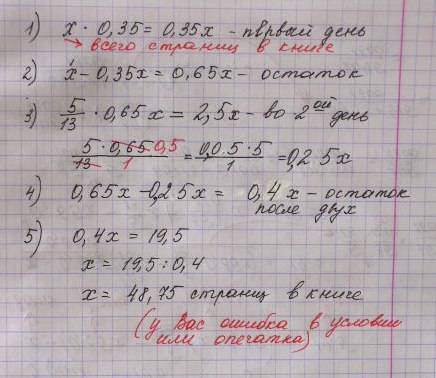 1) x · 0,35 = 0,35x - первый день
→ всего страниц в книге
2) x - 0,35x = 0,65x - остаток
3) 5/13 · 0,65x = 2,5x - во 2ой день
5 · 0,65 0,5 / 13 1 = 0,0.5.5 / 1 = 0,25x
4) 0,65x - 0,25x = 0,4x - остаток
после двух
5) 0,4x = 19,5
x = 19,5 : 0,4
x = 48,75 страниц в книге
(у Вас ошибка в условии
или опечатка)